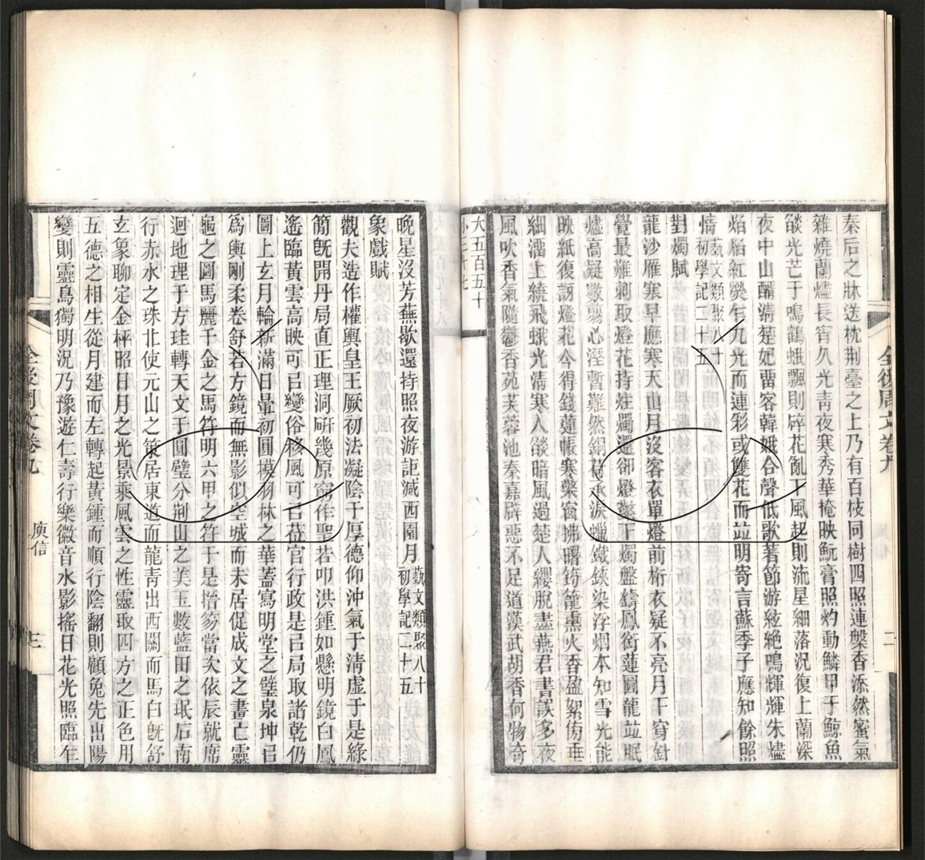 秦后之牀送枕荆臺之上乃有百枝同樹四照連槃香添然蜜氣
雜燒蘭燼長宵久光靑夜寒秀華掩映魭膏照灼動鱗甲于鯨魚
燄光芒于鳴鶴蛾飄則碎花亂下風起則流星細落況復上蘭深
夜中山醑淸楚妃畱客韓娥合聲低歌著節游絃絶鳴輝輝朱燼
焰焰紅熒乍九光而連彩或雙花而竝明寄言蘇季子應知餘照
情 藝文類聚八十 初學記二十五
對燭賦
龍沙雁塞早應寒天山月沒客衣單燈前桁衣疑不亮月下穿針
覺最難刺取燈花持炷燭還卻燈檠下燭盤鑄鳳銜蓮圖龍竝眠
爐高疑數翦心溼暫難然銅荷承淚蠟鐵鋏染浮烟本知雪光能
映紙復訝燈花今得錢蓮帳寒檠窗拂曙筠籠熏火香盈絮傍垂
細溜上繞飛蛾光淸寒入燄暗風過楚人纓脫盡燕君書誤多夜
風吹香氣隨鬱金香苑芙蓉池秦嘉辟惡不足道漢武胡香何物奇
大五百五十
晚星沒芳蕪歇還持照夜游詎減西園月 藝文類聚八十 初學記二十五
象戲賦
觀夫造作權輿皇王厥初法凝陰于厚德仰沖氣于淸虛于是綠
簡旣開丹局直正理洞硏幾原窮作聖若叩洪鍾如懸明鏡白鳳
遙臨黃雲高映可㠯變俗移風可㠯莅官行政是㠯局取諸乾仍
圖上玄月輪新滿日暈初圓模羽林之華蓋寫明堂之璧泉坤㠯
爲輿剛柔卷舒若方鏡而無影似空城而未居促成文之畫亡靈
龜之圖馬麗千金之馬符明六甲之符于是擡爻當次依辰就席
迴地理于方珪轉天文于圓璧分荆山之美玉數藍田之珉石南
行赤水之珠北使元山之策居東道而龍靑出西關而馬白旣舒
玄象聊定金枰昭日月之光景乘風雲之性靈取四方之正色用
五德之相生從月建而左轉起黃鍾而順行陰翻則顧兔先出陽
變則靈烏獨明況乃豫遊仁壽行樂徽音水影搖日花光照臨在
全後周文卷九
庾信